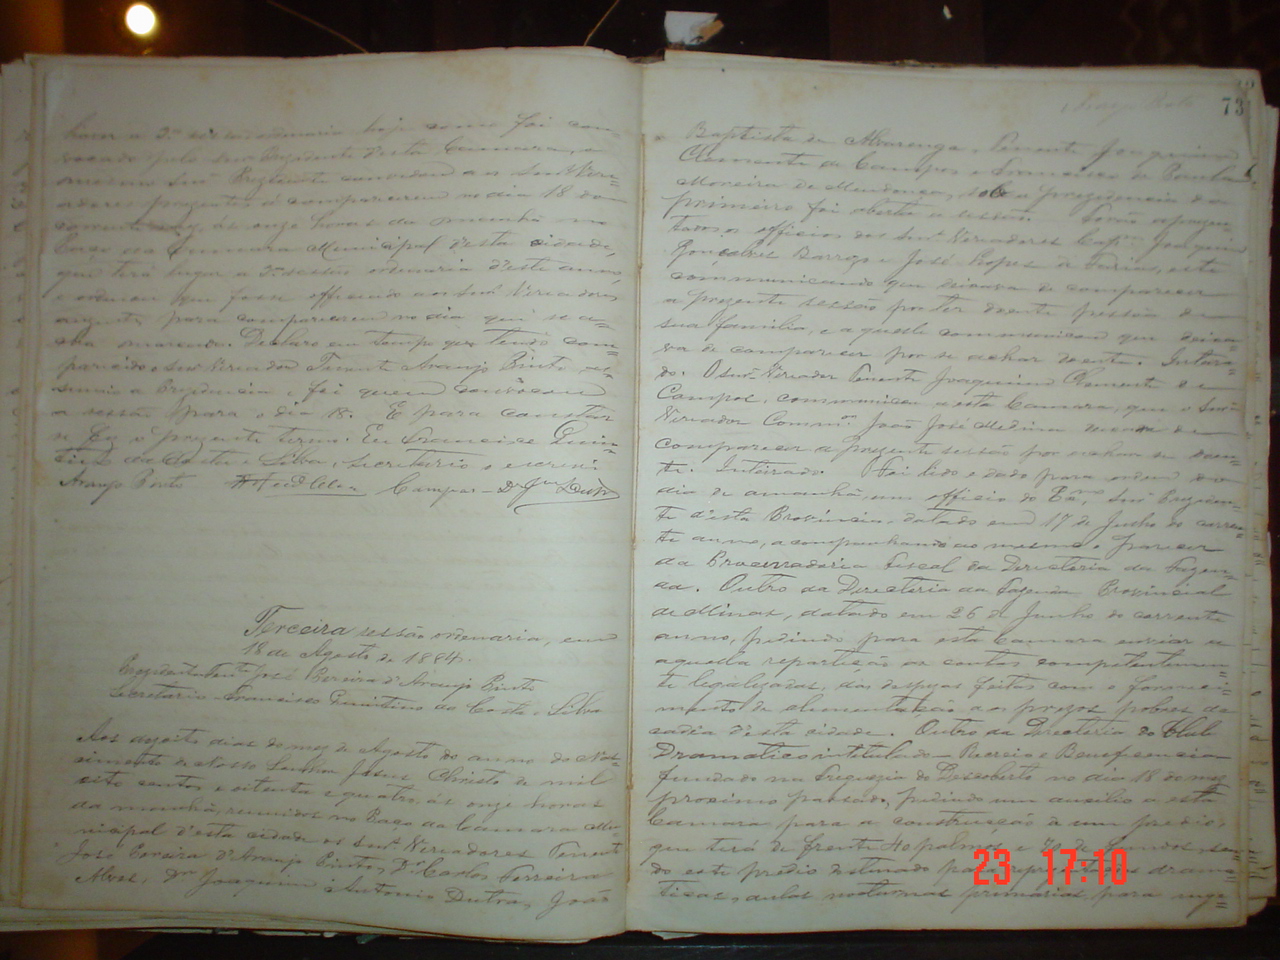 haver a 3ª sessão ordenaria hoje como foi con=
vocado pelo Snr Presidente d'esta Camara, o
mesmo Snr Presidente convidou a os Snrs Vere=
adores prezentes á comparecerem no dia 18 do
corrente mez, ás onze horas da manhã no
Paço da Camara Municipal d'esta cidade,
que terá lugar a 3ª sessão ordenaria d'este anno,
e ordenou que fosse officiado aos Snrs Vereadores
auzentes para comparecerem no dia que se a=
cha marcado. Declaro em tempo que tendo com=
parecido o Snr Vereador Tenente Araujo Pinto as=
sumio a Prezidencia e foi quem convocou
a sessão para o dia 18. E para constar
se fez o prezente termo. Eu Francisco Quin=
tino da Costa e Silva, secretario o escrevi.
Araujo Pinto Campos - Dr Jqm Dutra
Terceira sessão ordenaria, em
18 de Agosto de 1884.
Prezidente Tente José Pereira d'Araujo Pinto
Secretario Francisco Quintino da Costa e Silva
Aos dezoito dias do mez de Agosto do anno do Nas=
cimento de Nosso Senhor Jesus Christo de mil
oito centos e oitenta e quatro, ás onze horas
da manhã, reunidos no Paço da Camara Mu=
nicipal d'esta cidade os Snrs Vereadores Tenente
José Pereira d'Araujo Pinto, Dr Carlos Ferreira
Alves, Dr Joaquim Antonio Dutra, João
Araujo Pinto
73
Baptista de Alvarenga, Tenente Joaquim
Clemente de Campos e Francisco de Paula
Moreira de Mendonça, sob a prezidencia do
primeiro foi aberta a sessão. Forão aprezen=
tados os officios dos Snrs Vereadores Capm Joaquim
Gonçalves Barroso e José Lopes de Faria, este
communicando que deixava de comparecer
a prezente sessão por ter doente pessôa de
sua familia, e aquelle comunicou que deixa=
va de comparecer por se achar doente. Inteira=
do. O Snr Vereador Tenente Joaquim Clemente de
Campos, communicou a esta Camara, que o Snr
Vereador Commor João José Medina deixava de
comparecer a prezente sessão por achar-se doen=
te. Inteirado. Foi lido e dado para ordem do
dia de amanhã, um officio do Exmo Snr Preziden=
te d'esta Provincia, datado em 17 de Junho do corren=
te anno, acompanhando ao mesmo o parecer
da Procuradoria Fiscal da Directoria da Fazen=
da. Outro da Directoria da Fazenda Provincial
de Minas, datado em 26 de Junho do corrente
anno, pedindo para esta Camara enviar a
aquella repartição as contas competentemen=
te legalizadas, das despezas feitas com o forneci=
mento de alimentação aos prezos pobres da
cadia d'esta cidade. Outro da Directoria do Club
Dramatico intitulado - Recreio e Beneficencia
fundado na Freguezia do Descoberto no dia 18 do mez
proximo passado, pedindo um auxilio a esta
Camara para a construcção de um predio,
que terá de frente 40 palmos e 70 de fundos, sen=
do este predio destinado para reprezentações drama=
ticas, aulas nocturnas primarias, para
23 17:10